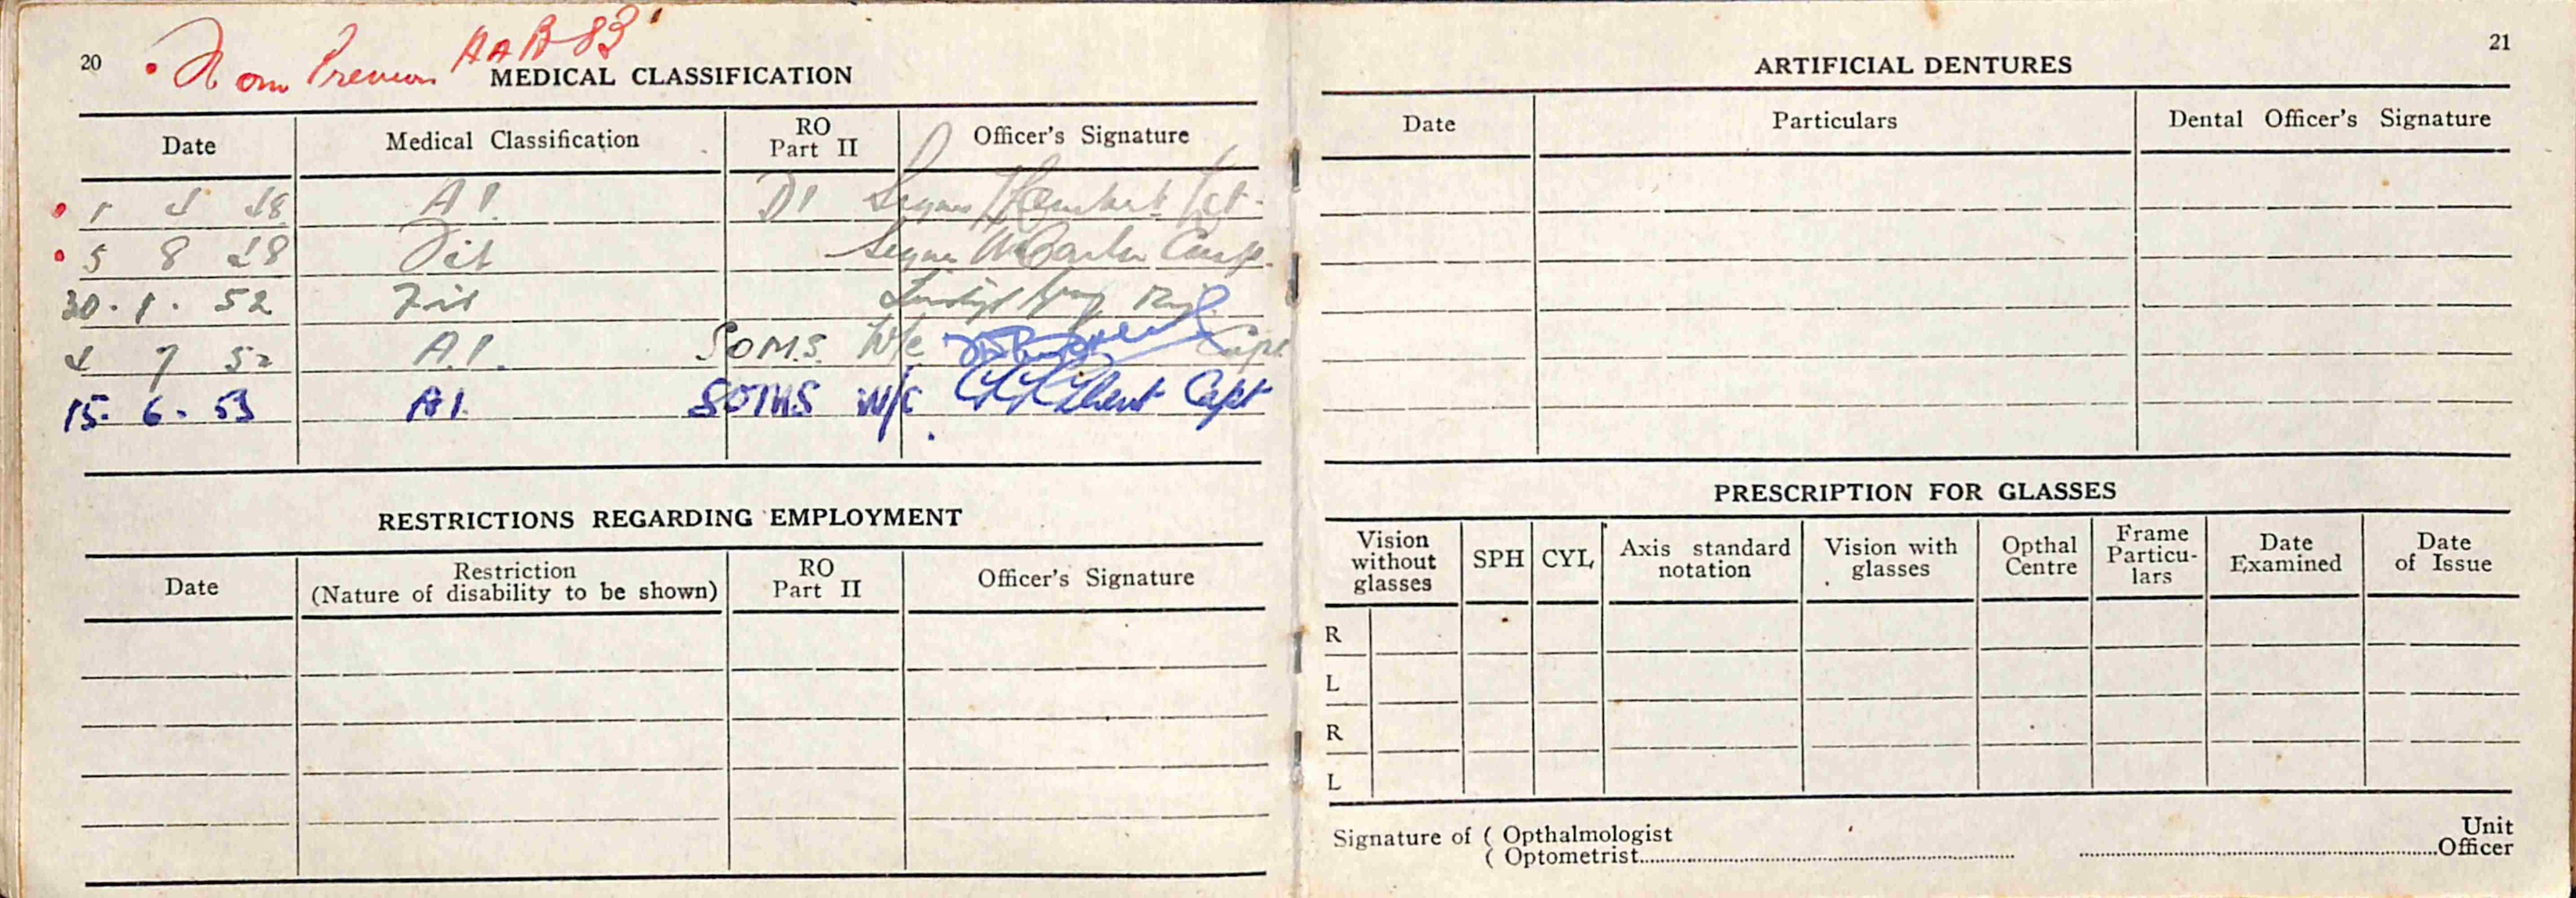 20
From Previous AAB 83
MEDICAL CLASSIFICATION
Date Medical Classification RO Part II Officer's Signature
1 4 48 A1. D1
5 8 48 Fit
30. 1. 52 Fit
4 7 52 A.1. SOMS W/C Capt
15. 6. 53 A1. SOMS W/C Capt
RESTRICTIONS REGARDING EMPLOYMENT
Date Restriction (Nature of disability to be shown) RO Part II Officer's Signature
21
ARTIFICIAL DENTURES
Date Particulars Dental Officer's Signature
PRESCRIPTION FOR GLASSES
Vision without glasses SPH CYL Axis standard notation Vision with glasses Opthal Centre Frame Particu-lars Date Examined Date of Issue
R
L
R
L
Signature of ( Opthalmologist Unit
( Optometrist Officer